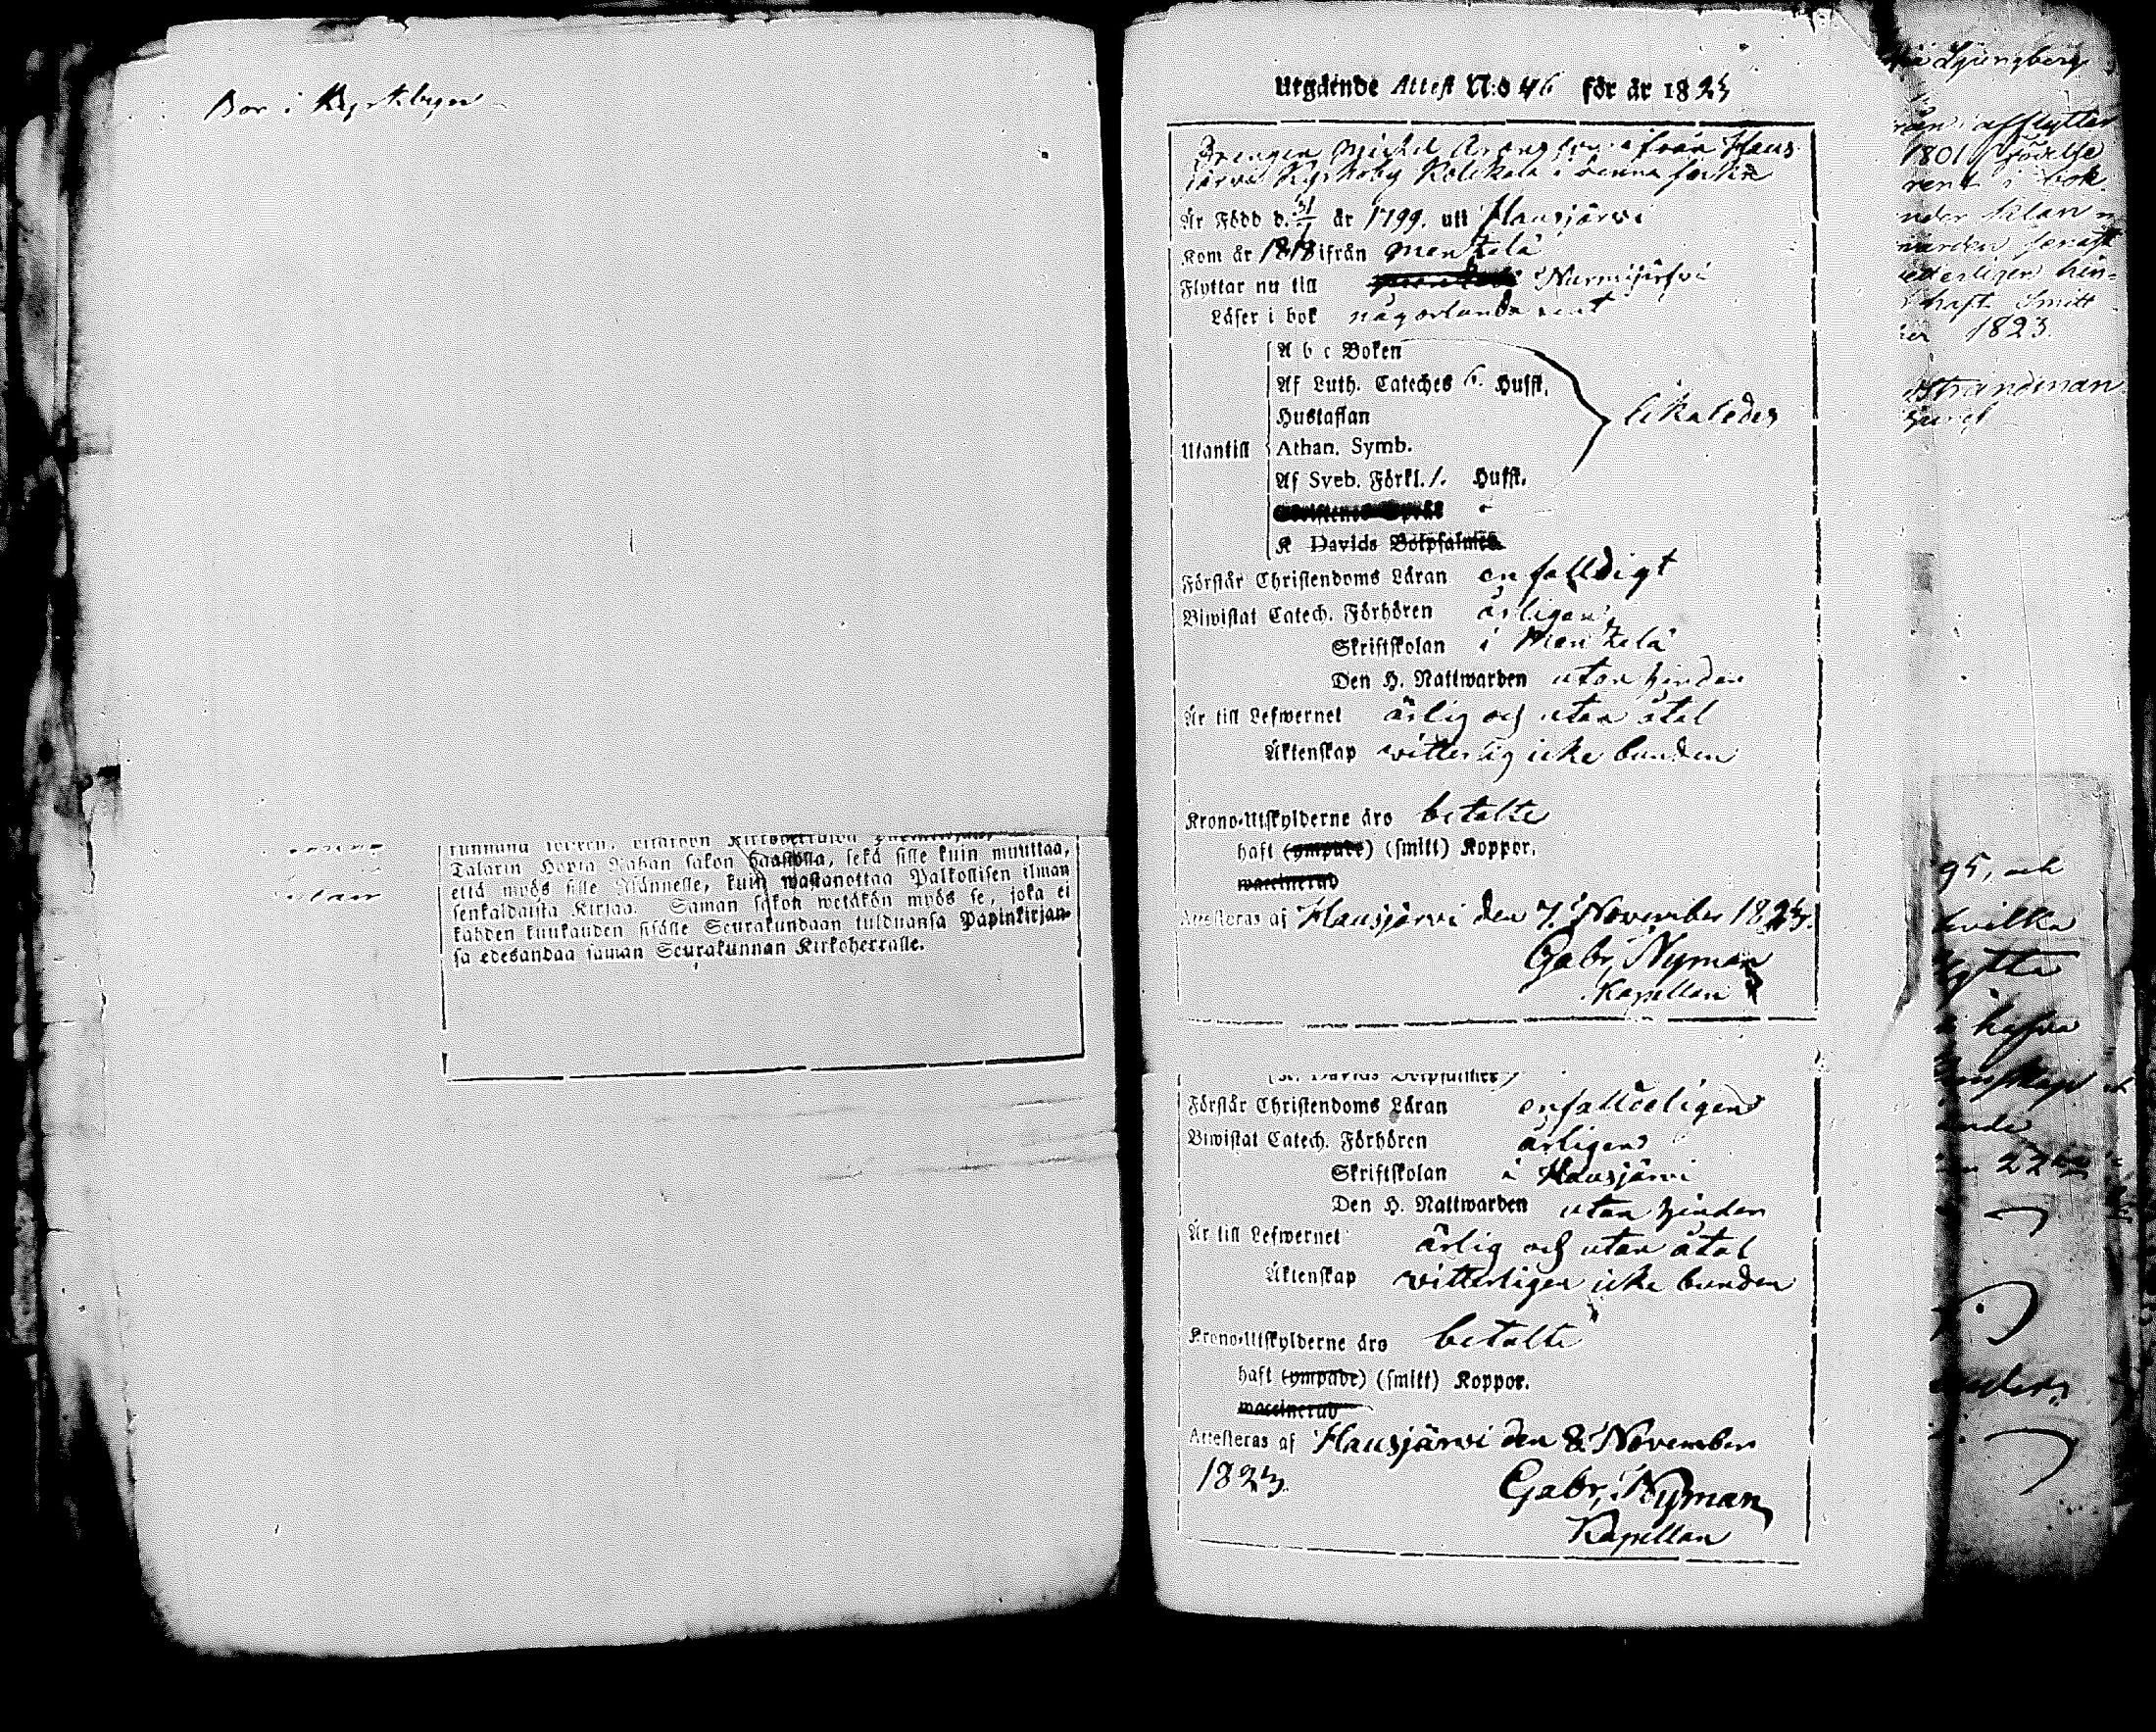 Bor i Kyrkbyn
Talarin Hopia Rahan sakon haastolla, sekä sille kuin muuttaa,
että myös sille Isännelle, kuin wastanottaa Palkollisen ilman
senkaldaista Kirjaa. Saman sakon wetäkön myös se, joka ei
kahden kuukauden sisälle Seurakundaan tulduansa Papinkirjan-
sa edesandaa saman Seurakunnan Kirkoherralle.
Utgående Attest N:o 46 för år 1823
Drengen Michel ifrån Haus
järvi Kyrkoby i denna socken
Är Född d. 31 år 1799. uti Hausjärvi
Kom år 1818 ifrån Mentzelä
Flyttar nu till Nurmijärfvi
Läser i bok någorlunda rent
A b c Boken
Af Luth. Cateches 6. Hufst.
Hustaflan
likaledes
Utantill Athan. Symb.
Af Sveb. Förkl. 1. Hufst.
K Davids Botpsalmer
Förstår Christendoms Läran enfalldigt
Biwistat Catech. Förhören årligen
Skriftskolan i Mentzelä
Den H. Nattwarden utan hinder
Är till Lefwernet ärlig och utan åtal
Äktenskap witterlig icke bunden
Krono-Utskylderne äro betalte
haft (ympade) (smitt) Koppor.
waccinerad
Attesteras af Hausjärvi den 7 November 1823.
Gabr. Nyman
Kapellan
Förstår Christendoms Läran enfalldeligen
Biwistat Catech. Förhören årligen
Skriftskolan i Hausjärvi
Den H. Nattwarden utan hinder
Är till Lefwernet ärlig och utan åtal
Äktenskap witterligen icke bunden
Krono-Utskylderne äro betalte
haft (ympade) (smitt) Koppor.
waccinerad
Attesteras af Hausjärvi den 8 November
1823.
Gabr. Nyman
Kapellan
Ljungberg
afflyttar
1801 födelse
rent i bok
hin-
haft Smitt
1823.
Strandman
95, och
hvilka
hafva